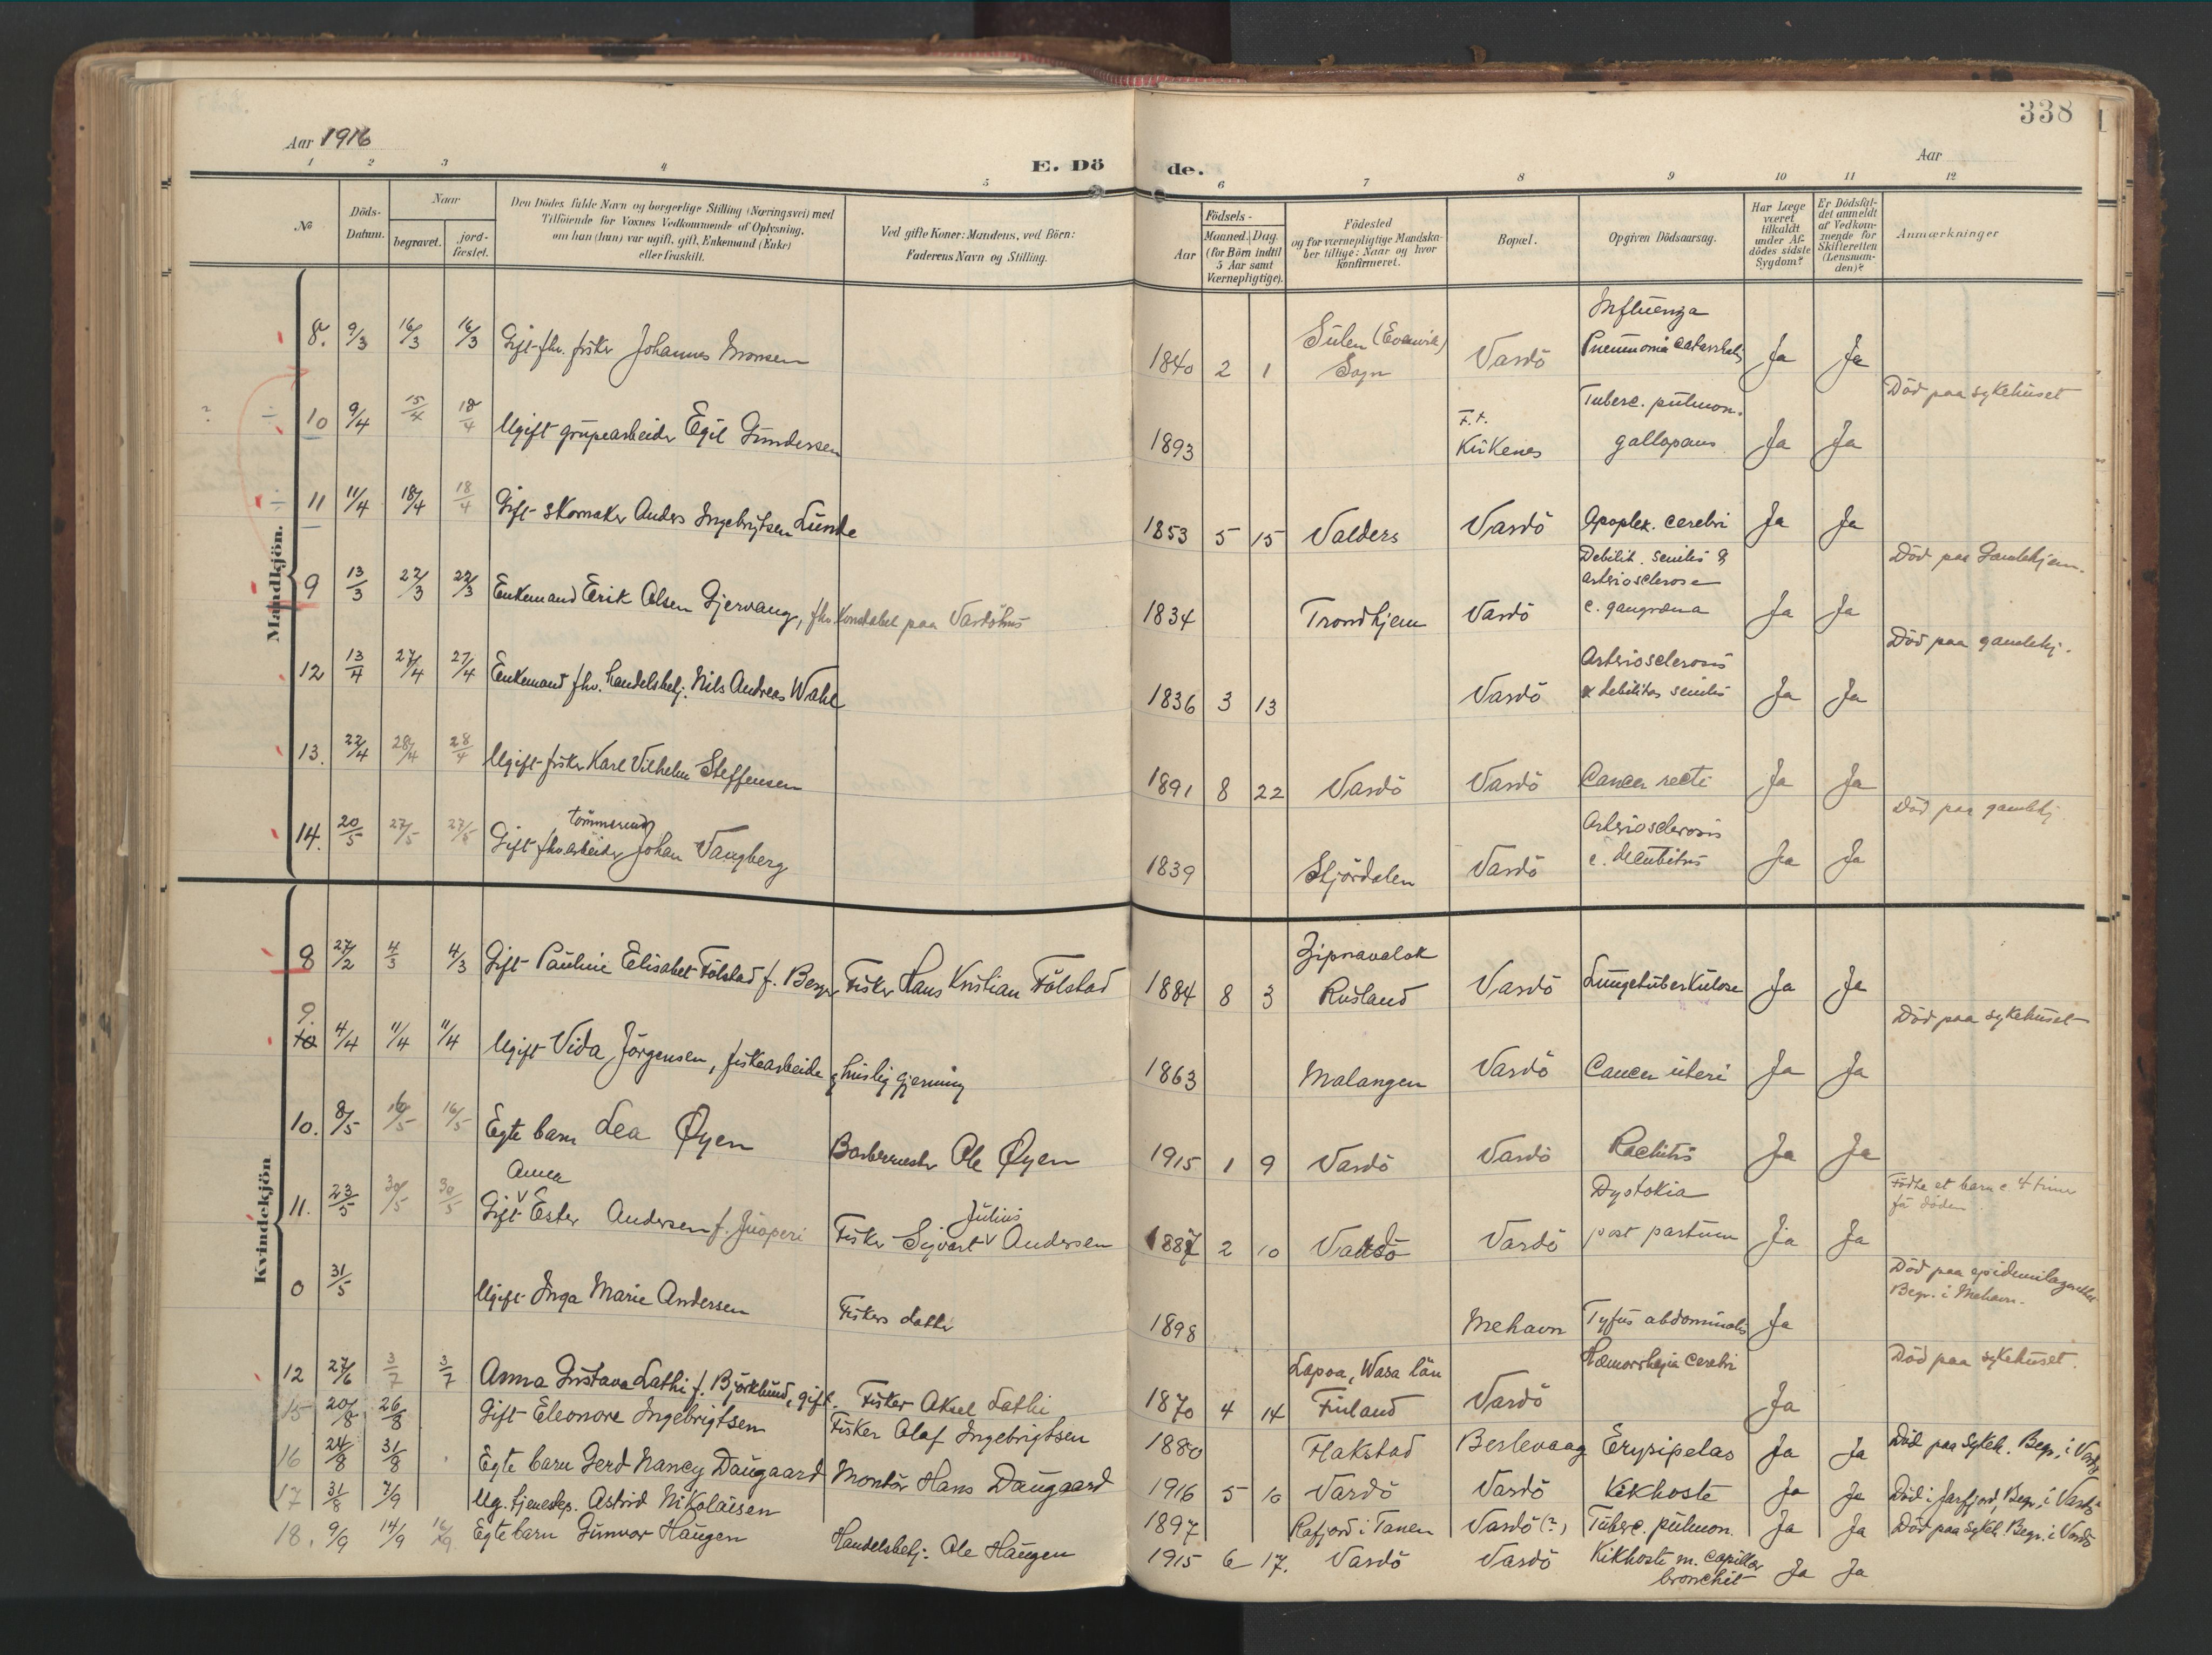 338
Aar 1916
Aar
1 2 3 4 5 6 7 8 9 10 11 12
E. Döde.
№
Döds-Datum.
Naar
begravet.
jord-fæstet.
Den Dödes fulde Navn og borgerlige Stilling (Næringsvei) med
Tilföiende for Voxnes Vedkommende af Oplysning,
om han (hun) var ugift, gift, Enkemand (Enke)
eller fraskilt.
Ved gifte Koner: Mandens, ved Börn:
Faderens Navn og Stilling.
Födsels-
Aar
Maaned. Dag.
(for Börn indtil
5 Aar samt
Værnepligtige).
Födested
og for værnepligtige Mandska-
ber tillige: Naar og hvor
konfirmeret.
Bopæl.
Opgiven Dödsaarsag.
Har Læge
været
tilkaldt
under Af-
dödes sidste
Sygdom?
Er Dödsfal-
det anmeldt
af Vedkom-
mende for
Skifteretten
(Lensman-
den)?
Anmærkninger
Mandkjön.
8. 9/3 16/3 16/3 Gift fhv. fisker Johannes Monsen 1840 2 1 Sulen (Evenvik) Sogn Vardö Influenza Pneumonia catarrhalis Ja Ja
10 9/4 15/4 18/4 Ugift grupearbeider Egil Gundersen 1893 F.t. Kirkenes Tuberc. pulmon. gallopans Ja Ja Död paa sykehuset
11 11/4 18/4 18/4 Gift skomaker Anders Ingebrigtsen Lunde 1853 5 15 Valders Vardö Apoplex. cerebri Ja Ja
9 13/3 22/3 22/3 Enkemand Erik Olsen Gjervang, fhv. Konstabel paa Vardöhus 1834 Trondhjem Vardö Debilit. senilis & arteriosclerose c. gangræna Ja Ja Död paa Gamlehjem.
12 13/4 27/4 27/4 Enkemand fhv. handelsbetj. Nils Andreas Wahl 1836 3 13 Vardö Arteriosclerosis & debilitas senilis Ja Ja Död paa gamlehj.
13. 22/4 28/4 28/4 Ugift fisker Karl Vilhelm Steffensen 1891 8 22 Vardö Vardö Cancer recti Ja Ja
14. 20/5 27/5 27/5 Gift fhv. arbeider Johan Vangberg 1839 Stjördalen Vardö Arteriosclerosis c. decubitus Ja Ja Död paa gamlehj.
Kvindekjön
8 27/2 4/3 4/3 Gift Pauline Elisabet Fölstad f. Berger Fisker Hans Kristian Fölstad 1884 8 3 Zipnavalok Rusland Vardö Lungetuberkulose Ja Ja
9. 10 4/4 11/4 11/4 Ugift Vida Jörgensen, fiskearbeide & huslig gjerning 1863 Malangen Vardö Cancer uteri Ja Ja Död paa sykehuset
10. 8/5 16/5 16/5 Egte barn Lea Øyen Barbermester Ole Øyen 1915 1 9 Vardö Vardö Rachitis Ja Ja
Anna
11. 23/5 30/5 30/5 Gift Ester Andersen f. Juoperi Fisker Sigvart Julius Andersen 1887 2 10 Vadsö Vardö Dystokia post partum Ja Ja Födte et barn c. 4 timer för döden.
0 31/5 Ugift Inga Marie Andersen Fiskers datter 1898 Mehavn Tyfus abdominalis Ja Död paa epidemilazarettet Begr. i Mehavn.
12 27/6 3/7 3/7 Anna Gustava Lathi f. Björklund, gift. Fisker Aksel Lathi 1870 4 14 Lapoa, Wasa län Finland Vardö Hæmorrhagia cerebri Ja Död paa sykehuset.
15 20/8 26/8 Gift Eleonore Ingebrigtsen Fisker Olaf Ingebrigtsen 1880 Flakstad Berlevaag Erysipelas Ja Ja Död paa sykeh. Begr. i Vardö
16 24/8 31/8 Egte barn Gerd Nancy Daugaard Montör Hans Daugaard 1916 5 10 Vardö Vardö Kikhoste Ja Ja Död i Jarfjord, Begr. i Vardö
17 31/8 7/9 Ug. tjenestep. Astrid Nikolaisen 1897 Rafjord i Tanen Vardö (?) Tuberc. pulmon. Ja Ja Död paa sykeh. Begr. i Vardö
18. 9/9 14/9 16/9 Egte barn Gunvor Haugen Handelsbetj. Ole Haugen 1915 6 17. Vardö Vardö Kikhoste m. capillær bronchit Ja Ja